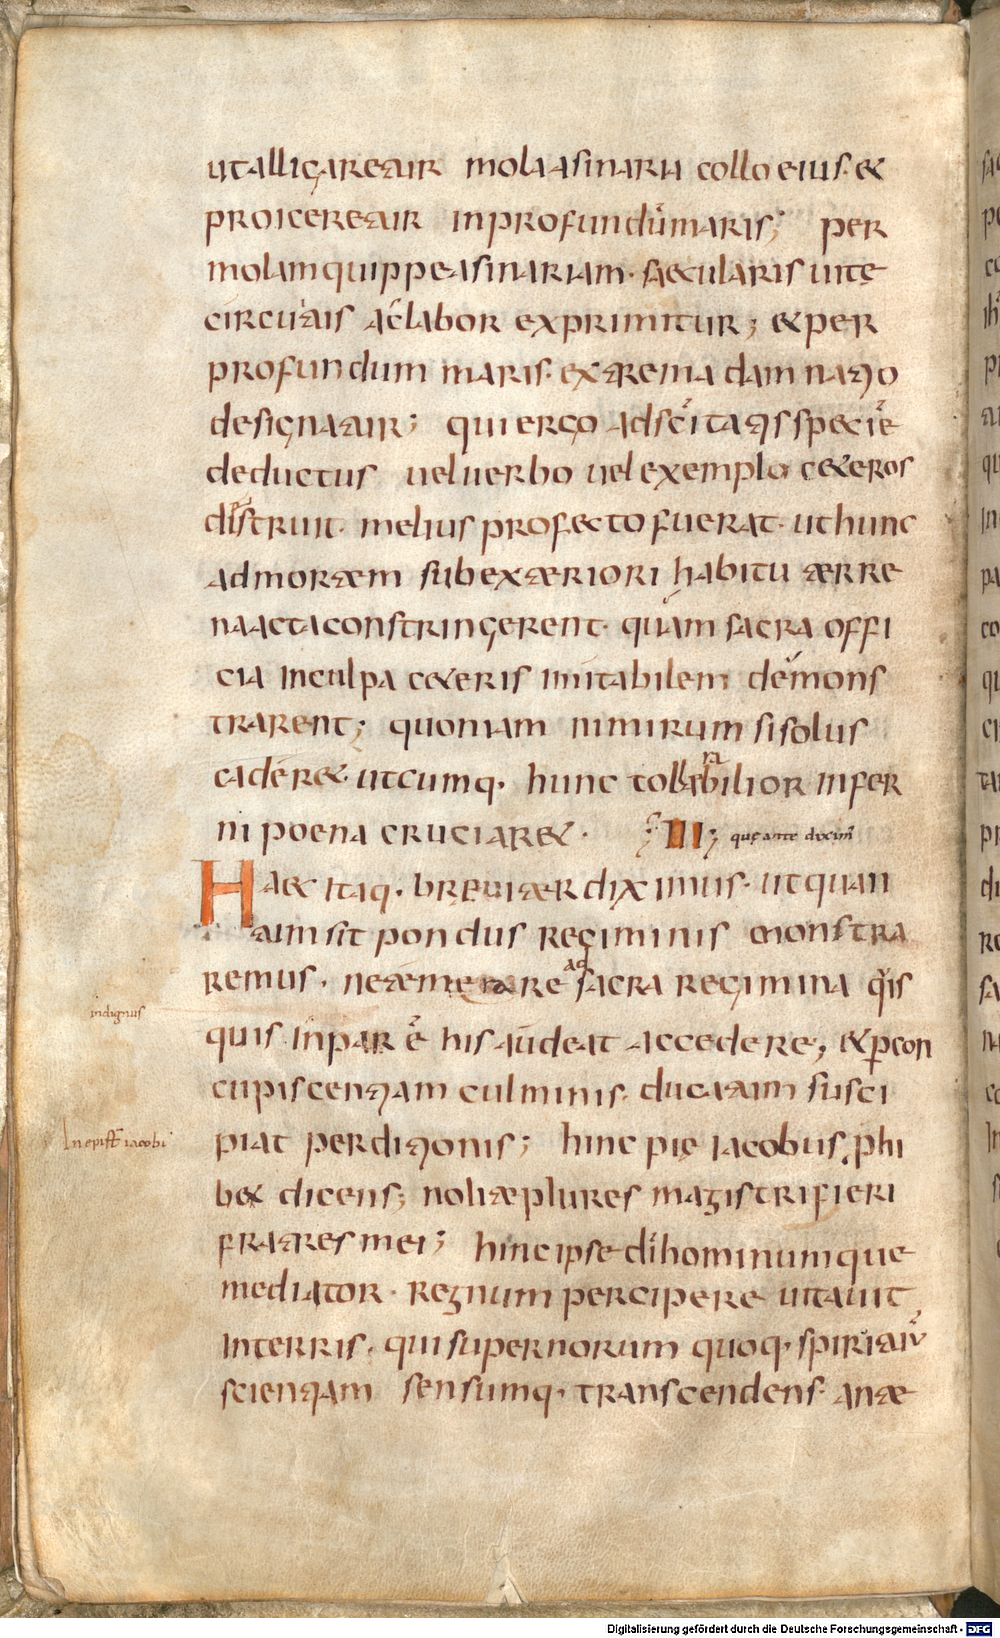 ut alligaretur mola asinaria collo eius. &
proiceretur in profundū maris; per
molam quippe asinariam. sęcularis uitę
circuitus ac labor exprimitur; & per
profundum maris. extrema damnatio
designatur; qui ergo ad scitatis speciē
deductus uel uerbo uel exemplo ceteros
distruit. melius profecto fuerat. ut hunc
ad mortem sub exteriori habitu terre
na acta constringerent. quam sacra offi
cia in culpa ceteris imitabilem demons
trarent; quoniam nimirum si solus
cader&. utcumq. hunc tollerabilior infer
ni poena cruciar&. III; quę ante diximꝰ
Haec itaq. breuiter diximus. ut quan
tum sit pondus regiminis monstra
remus. ne temerare ad sacra regimina q̇s
quis inpar ē his audeat accedere, & ꝑ con
indignus
cupiscentiam culminis. ducatum susci
piat perditionis; hinc pię iacobus. phi
In epist̄ iacobi
b& dicens; nolite plures magistri fieri
fratres mei; hinc ipse dī hominumque
mediator. regnum percipere uitauit
in terris. qui supernorum quoq. spirituū
scientiam sensumq. transcendens. ante